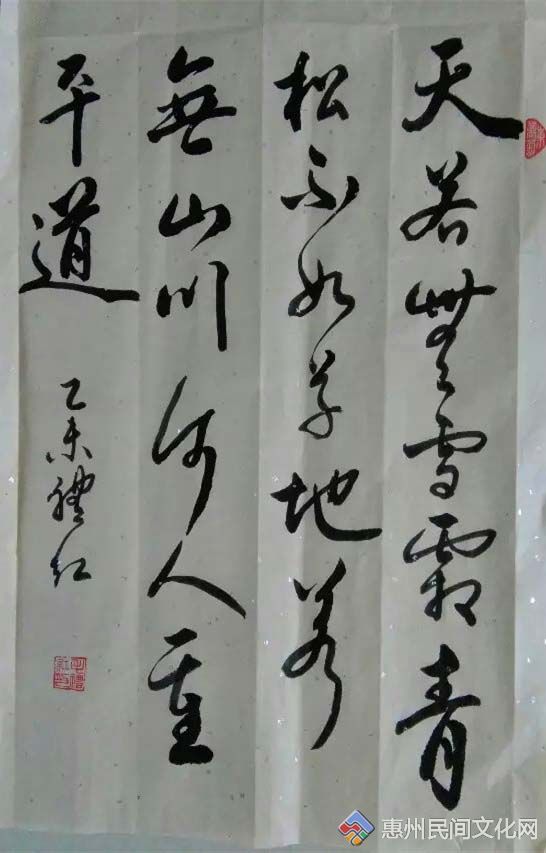 天若無雪霜青
松不如草地若
無山川何人重
平道
乙未禮紅
惠州民间文化网